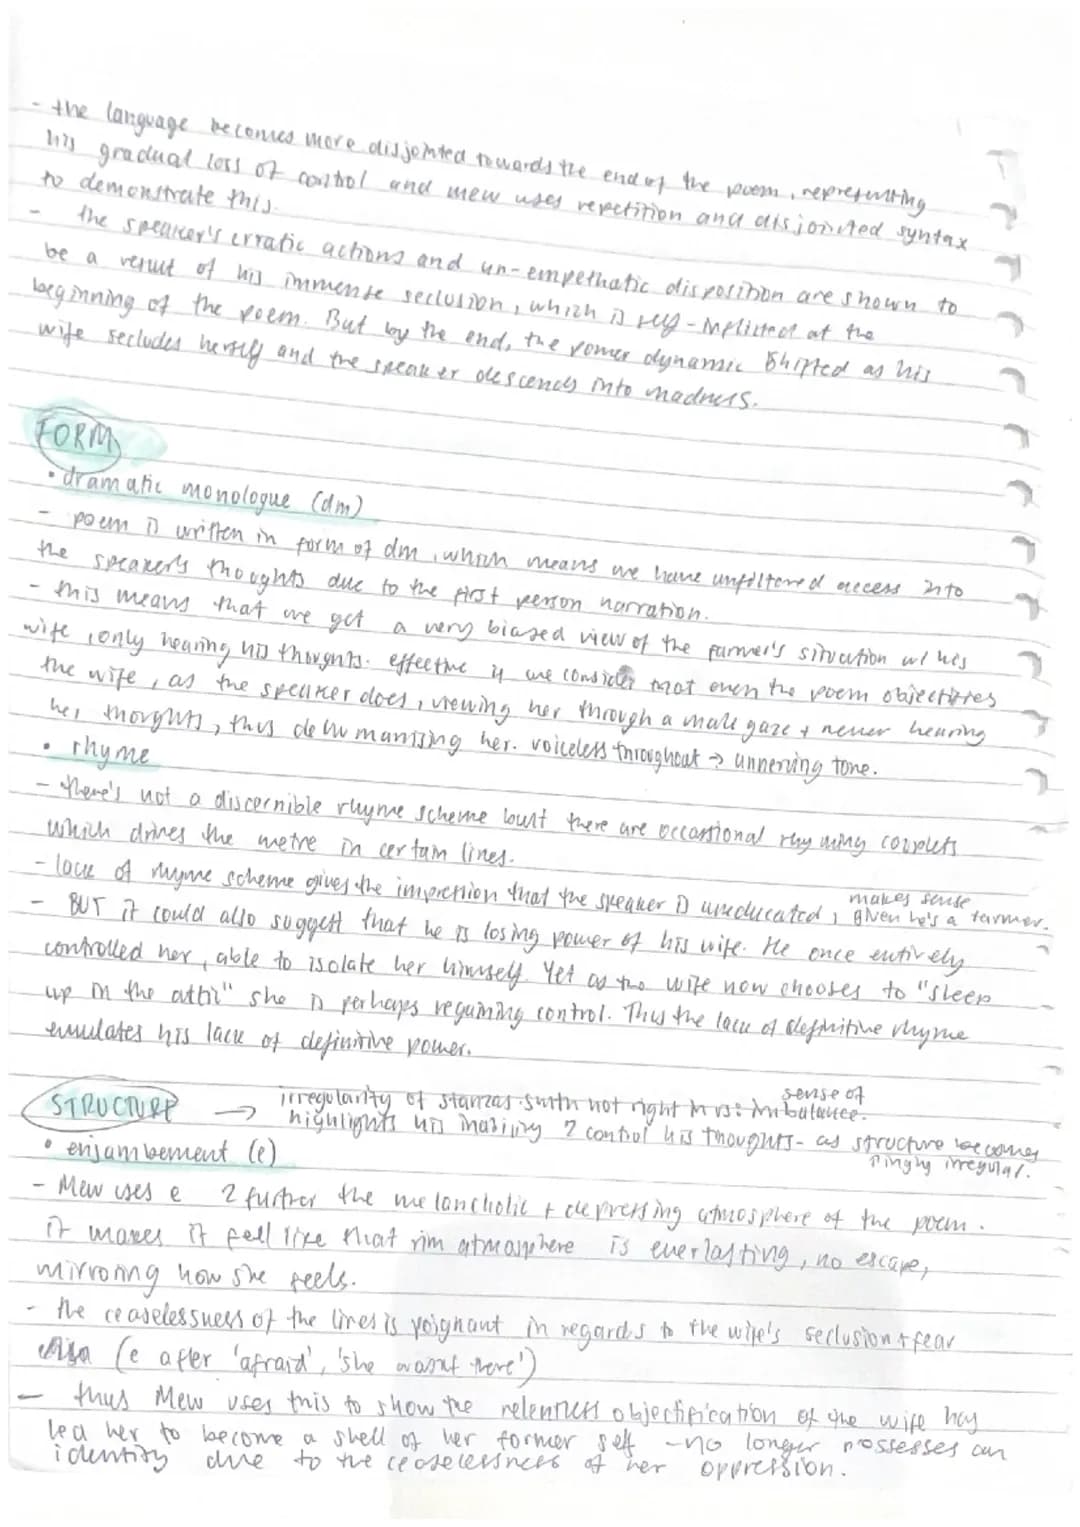 - the language becomes more disjointed towards the end of the poem, representing
his gradual loss of control and mew uses repetition and disjointed syntax
to demonstrate this.
- the speaker's erratic actions and un-empethatic disposition are shown to
be a result of his immense seclusion, which is self-inflicted at the
beginning of the poem. But by the end, the power dynamic shifted as his
wife secludes herself and the speaker descends into madness.
FORM
• dramatic monologue (dm)
- poem is written in form of dm, which means we have unfiltered access into
the speaker's thoughts due to the first person narration.
- this means that we get a very biased view of the farmer's situation w/ his
wife, only hearing his thoughts. effective if we consider that even the poem objectifies
the wife, as the speaker does, viewing her through a male gaze + never hearing
her thoughts, thus dehumanising her. voiceless throughout → unnerving tone.
• rhyme
- there's not a discernible rhyme scheme but there are occassional rhyming couplets
which drives the metre in certain lines.
- lack of rhyme scheme gives the impression that the speaker is uneducated, makes sense given he's a farmer.
- BUT it could also suggest that he is losing power of his wife. He once entirely
controlled her, able to isolate her himself. Yet as the wife now chooses to "sleep
up in the attic" she is perhaps regaining control. Thus the lack of definitive rhyme
emulates his lack of definitive power.
STRUCTURE → irregularity of stanzas: smth not right in rs: sense of imbalance.
highlights his inability 2 control his thoughts - as structure becomes
irregular.
• enjambement (e)
- Mew uses e 2 further the melancholic + depressing atmosphere of the poem.
it makes it feel like that atmosphere is everlasting, no escape,
mirroring how she feels.
- the ceaselessness of the lines is poignant in regards to the wife's seclusion + fear
(e after 'afraid', 'she wasn't there')
- thus Mew uses this to show the relentless objectification of the wife has
led her to become a shell of her former self - no longer possesses an
identity due to the ceaselessness of her oppression.